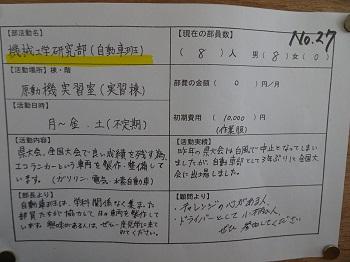 No.27
【部活動名】
機械工学研究部(自動車班)
【現在の部員数】
(8)人 男(8)女(0)
【活動場所】棟・階
原動機実習室(実習棟)
部費の金額( 0 )円/月
【活動日時】
月～金・土(不定期)
初期費用(10,000)円
(作業服)
【活動内容】
県大会、全国大会で良い成績を残す為、
エコランカーという車両を製作・整備して
います。(ガソリン・電気・
自動車)
【活動実績】
昨年の県大会は台風で中止となってしまい
ましたが、自動車部として3年ぶりに全国大
会に出場しました。
【部長より】
自動車班は、学科関係なく集まった
部員たちが協力して日々車両を製作して
います。興味がある人は、ぜひ一度見学に来て
みてください。
【顧問より】
・チャレンジの心がある人、
・ドライバーとして小柄な人、
ぜひ参加してください